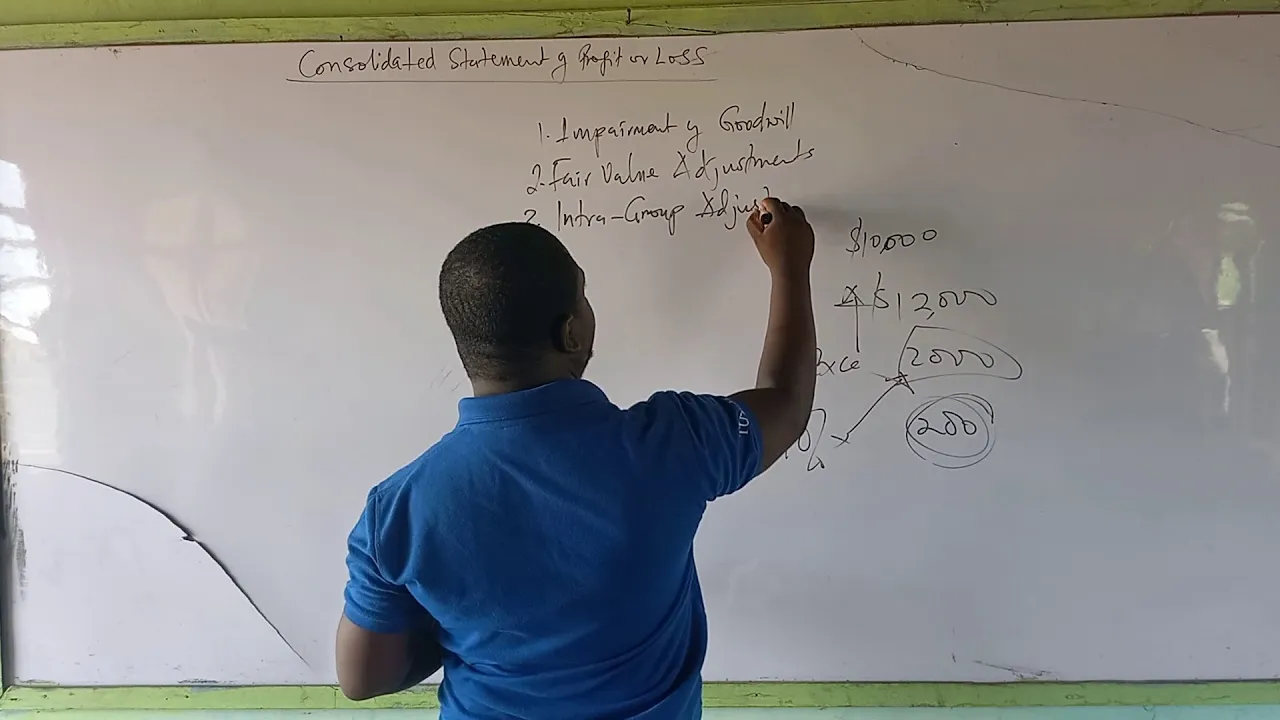 Consolidated Statement of Profit or Loss
1. Impairment of Goodwill
2. Fair Value Adjustments
Intra-Group Adjust
$10,000
$12,000
2000
200